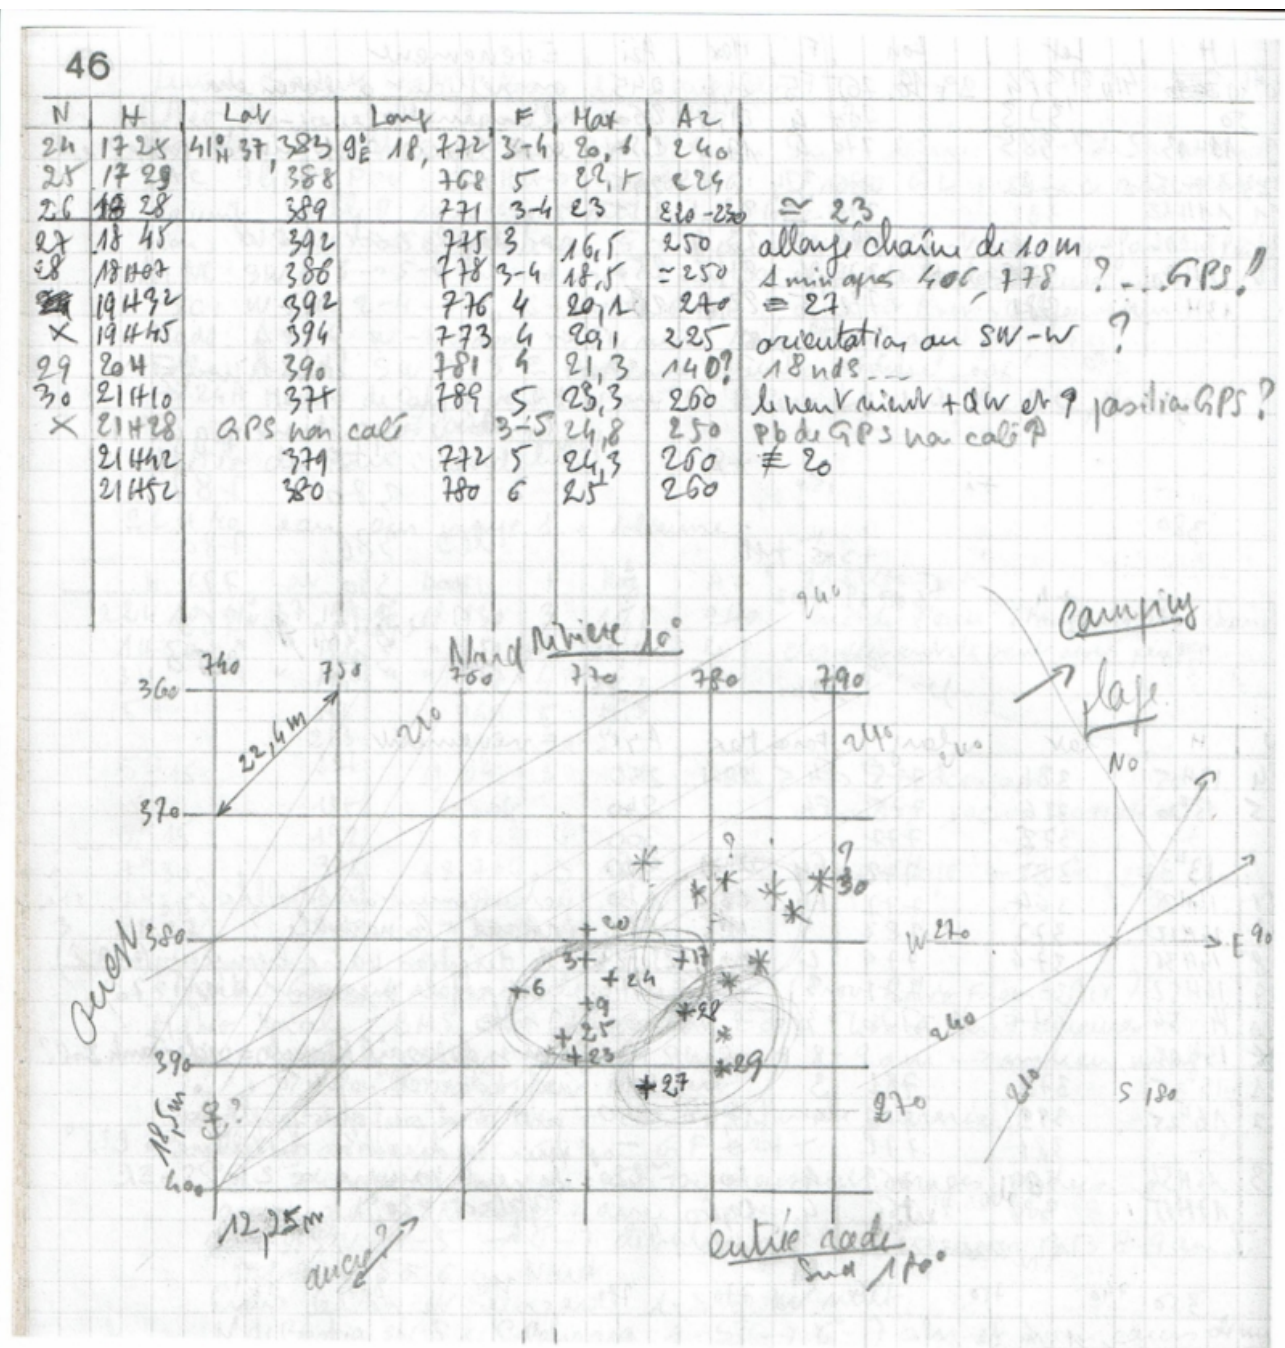 46
N H Lat Long F Max Az
24 1725 41°N 37,383 9°E 18,772 3-4 20,6 240
25 1729 388 768 5 22,5 224
26 1828 389 771 3-4 23 220-230 ≃ 23
27 1845 392 775 3 16,5 250 allongé chaîne de 10m
28 18H07 386 778 3-4 18,5 ≃250 1 min après 406, 778 ? ... GPS!
19H32 392 776 4 20,1 270 ≡ 27
X 19H45 394 773 4 20,1 225 orientation au SW-W ?
29 20H 390 781 4 21,3 140? 18 nds ....
30 21H10 375 789 5 23,3 260 le vent vient + QW et ? position GPS?
X 21H28 GPS non calé 3-5 24,8 250 Pb de GPS non calé?
21H42 379 772 5 24,3 260 ≢ 20
21H52 380 780 6 25 260
240
Camping
Nord Rivière 10°
740 750 760 770 780 790
360
plage
22,4m
210
240
240
NO
370
?
?
30
380
20
W 270
E 90
ouest
3
17
6
24
9
28
25
240
23
390
29
27
270
210
S 180
18,5m
?
400
12,25m
ancre?
entrée rade
Sud 180°